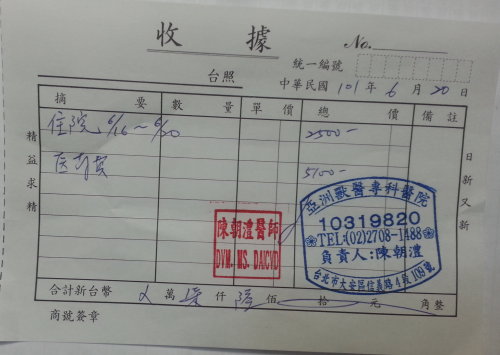 收據
No.
統一編號
台照
中華民國 101 年 6 月 20 日
摘要 數量 單價 總價 備註
住院 6/16～6/20 2500-
医药费 5100-
精益求精
日新又新
陳朝澧醫師
DVM. MS. DAICVD
亞洲獸醫專科醫院
10319820
TEL:(02)2708-1488
負責人:陳朝澧
台北市大安區信義路4段109號
合計新台幣 萬 柒 仟 陸 佰 拾 元 角整
商號簽章